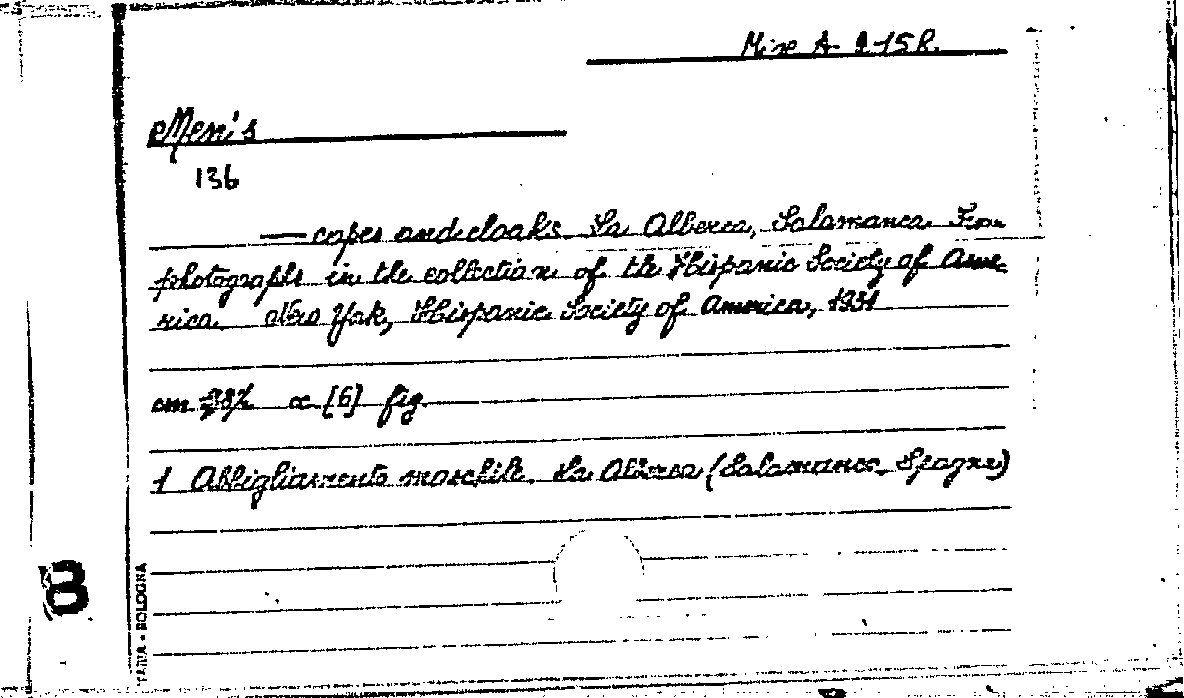 Misc A 2-15 R.
Men's
136
— capes and cloaks La Alberca, Salamanca From
photographs in the collection of the Hispanic Society of Ame-
rica. New York, Hispanic Society of America, 1931
cm 18½ cc [6] fig.
1 Abbigliamento maschile. La Alberca (Salamanca, Spagna)
8
BOLOGNA